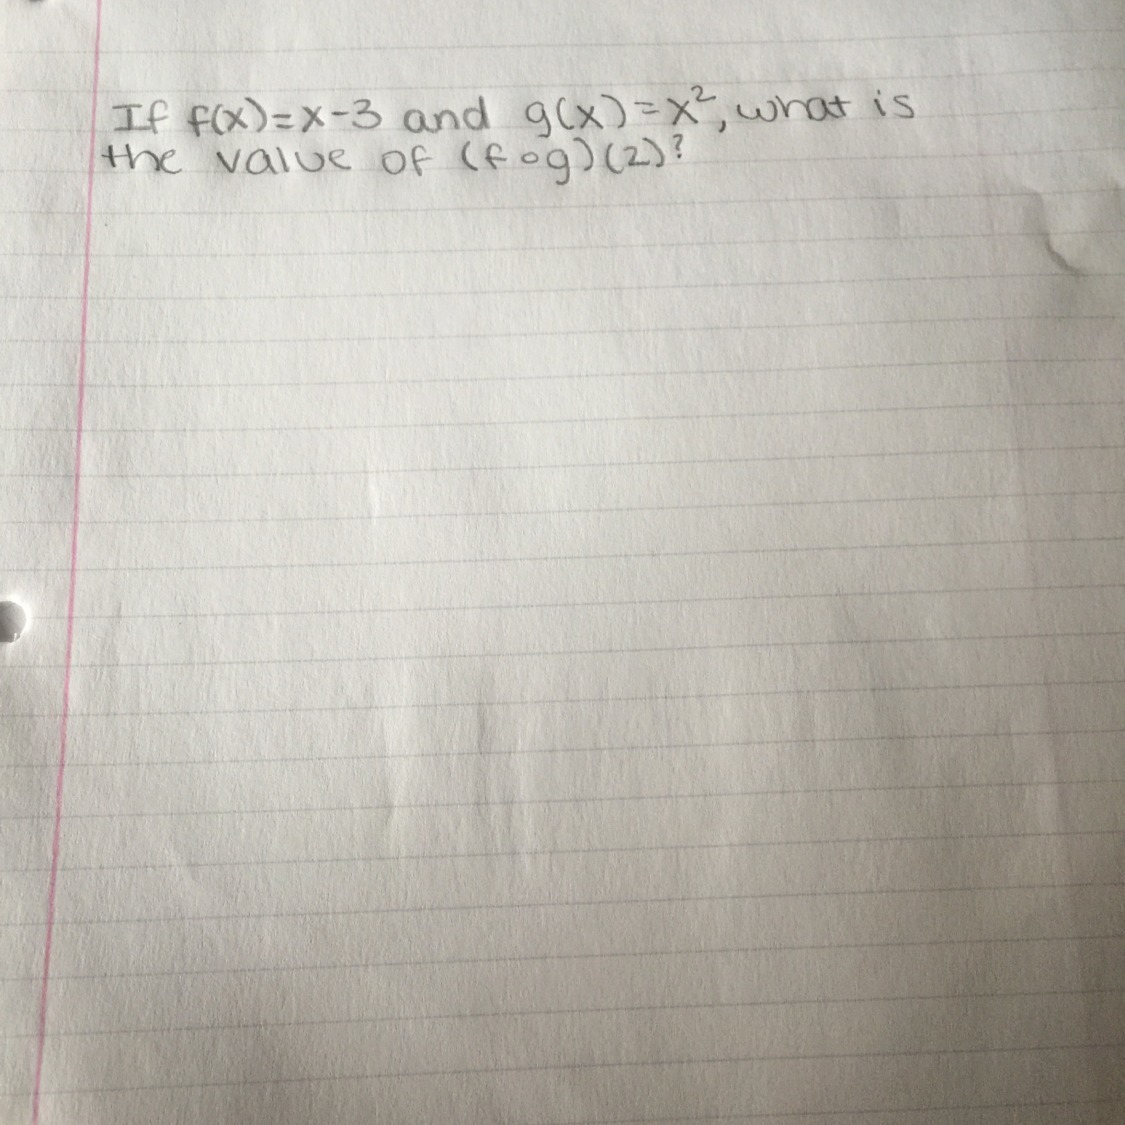 If f(x)=x-3 and g(x)=x², what is
the value of (f∘g)(2)?